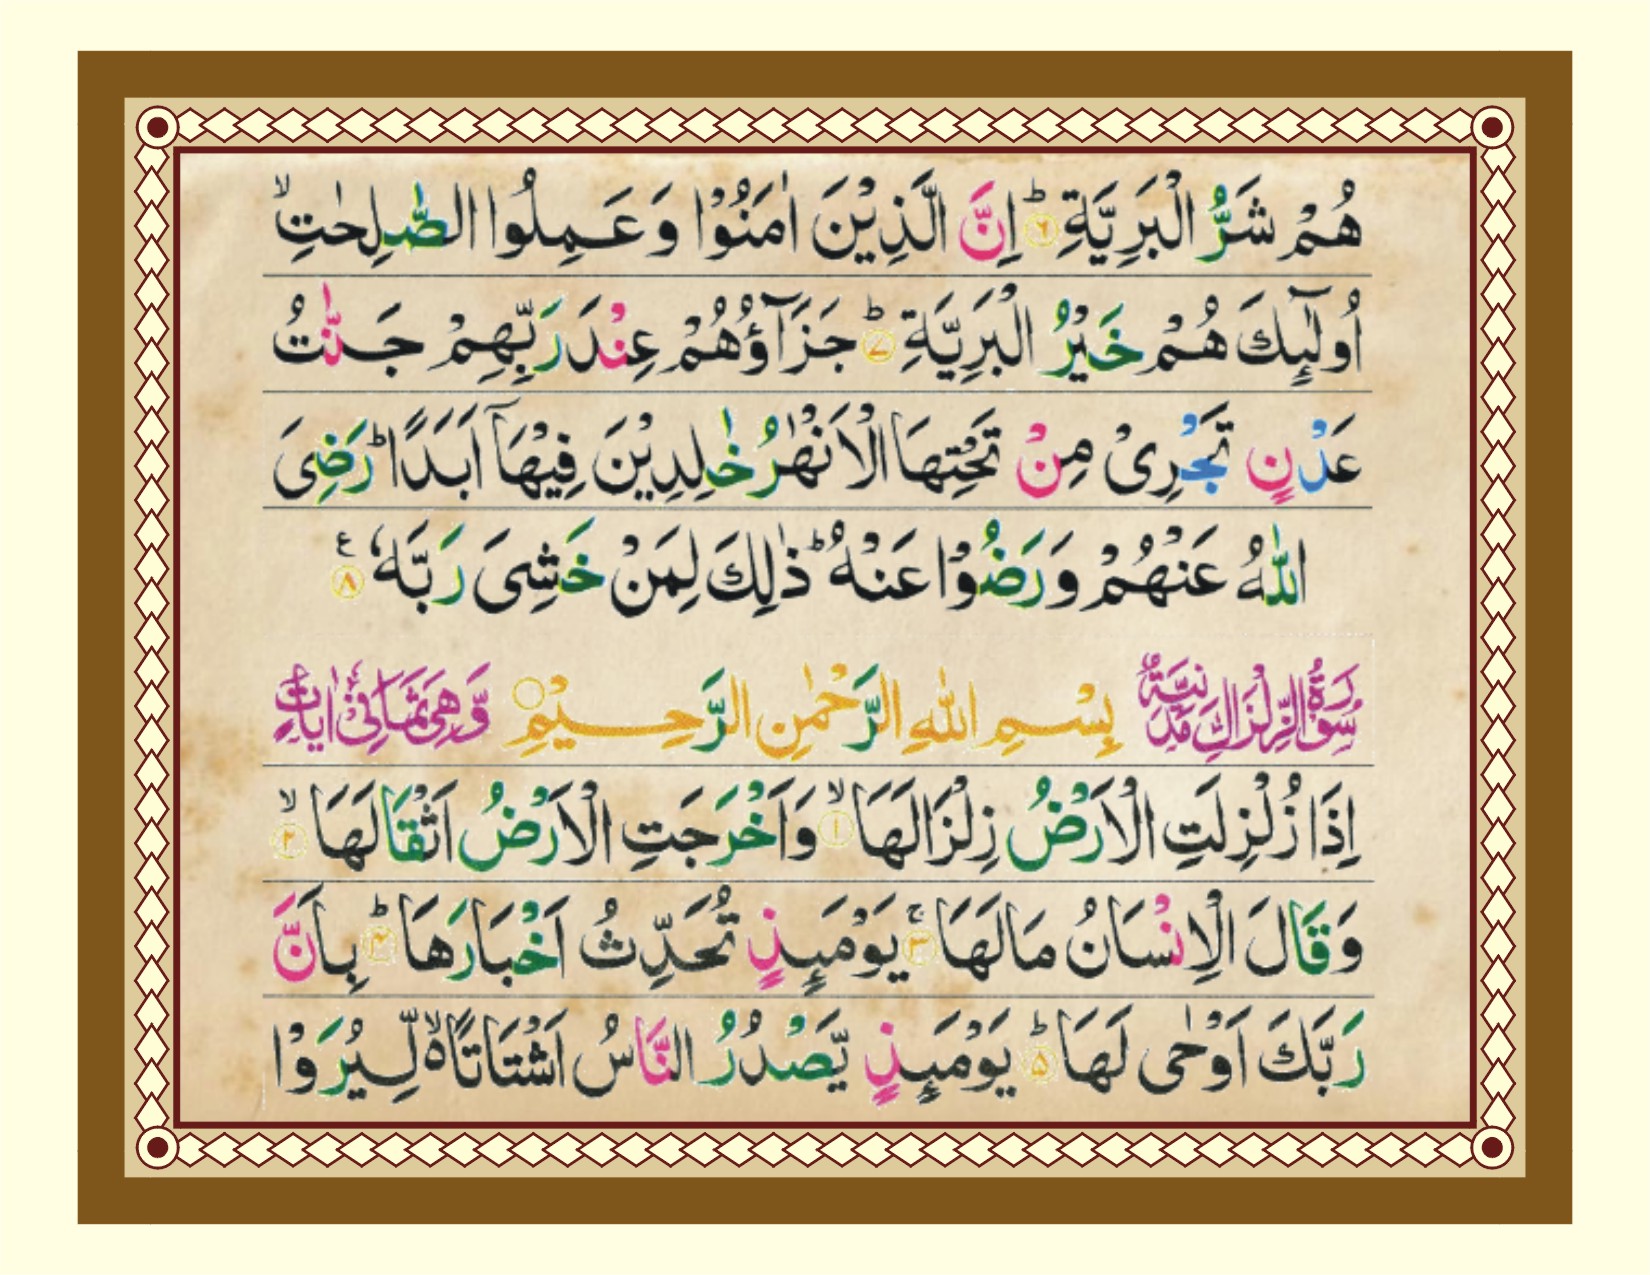 هُمْ شَرُّ الْبَرِيَّةِؕ ۶ اِنَّ الَّذِيْنَ اٰمَنُوْا وَعَمِلُوا الصّٰلِحٰتِۙ
اُولٰٓئِكَ هُمْ خَيْرُ الْبَرِيَّةِؕ ۷ جَزَآؤُهُمْ عِنْدَ رَبِّهِمْ جَنّٰتُ
عَدْنٍ تَجْرِىْ مِنْ تَحْتِهَا الْاَنْهٰرُ خٰلِدِيْنَ فِيْهَاۤ اَبَدًاؕ رَضِىَ
اللّٰهُ عَنْهُمْ وَرَضُوْا عَنْهُؕ ذٰلِكَ لِمَنْ خَشِىَ رَبَّهٗ ۸ ع
سُوْرَةُ الزِّلْزَالِ مَدَنِيَّةٌ بِسْمِ اللّٰهِ الرَّحْمٰنِ الرَّحِيْمِ وَّهِىَ ثَمَانِىْ اٰيَاتٍ
اِذَا زُلْزِلَتِ الْاَرْضُ زِلْزَالَهَاۙ ۱ وَاَخْرَجَتِ الْاَرْضُ اَثْقَالَهَاۙ ۲
وَقَالَ الْاِنْسَانُ مَا لَهَاۚ ۳ يَوْمَئِذٍ تُحَدِّثُ اَخْبَارَهَاؕ ۴ بِاَنَّ
رَبَّكَ اَوْحٰى لَهَاؕ ۵ يَوْمَئِذٍ يَّصْدُرُ النَّاسُ اَشْتَاتًا ەۙ لِّيُرَوْا